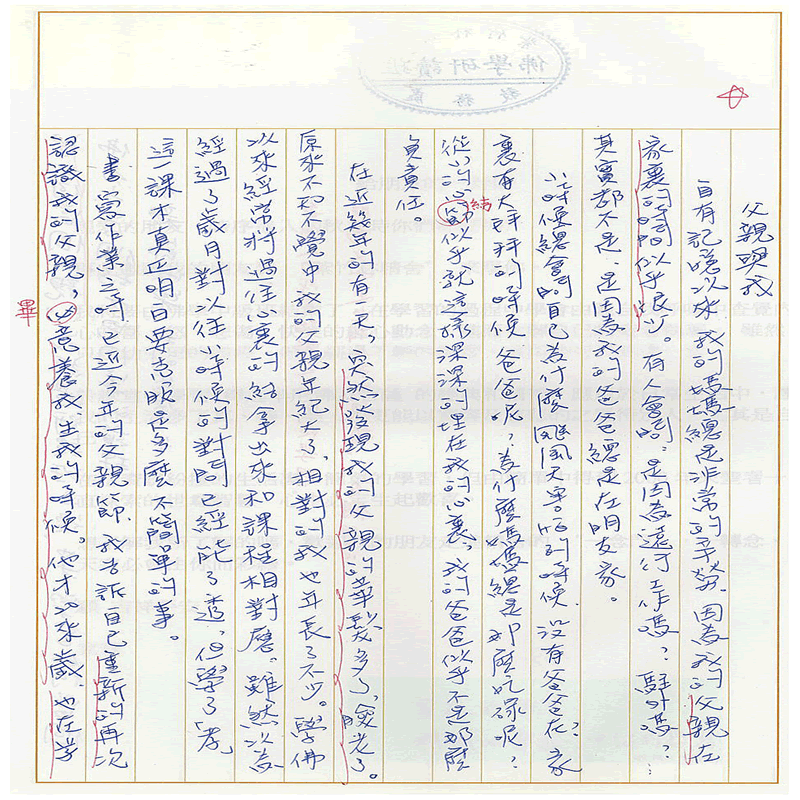 父親與我
自有記憶以來我的媽媽總是非常的辛勞。因為我的父親在
家裏的時間似乎很少。有人會問，是因為遠行工作嗎？駐外嗎？
其實都不是，是因為我的爸爸總是在朋友家。
小時候總會問自己為什麼颱風天害怕的時候，沒有爸爸在？家
裏有大拜拜的時候爸爸呢？為什麼媽媽總是那麼忙碌呢？
從小的心節似乎就這樣深深的埋在我的心裏，我的爸爸似乎不是那麼
結
負責任。
在近幾年的有一天，突然發現我的父親的華髮多了，變老了。
原來不知不覺中我的父親年紀大了，相對的我也年長了不少。學佛
以來經常將過往裏的結拿出來和課程相對應。雖然以為
經過了歲月對以往小時候的對問已經能了透，但學了「孝」
這一課才真正明白要克服是多麼不簡單的事。
書寫作業之時已近今年的父親節，我告訴自己重新的再次
認識我的父親，必竟養我、生我的時候。他才廿來歲，也在學
畢
佛學研讀班
教務處